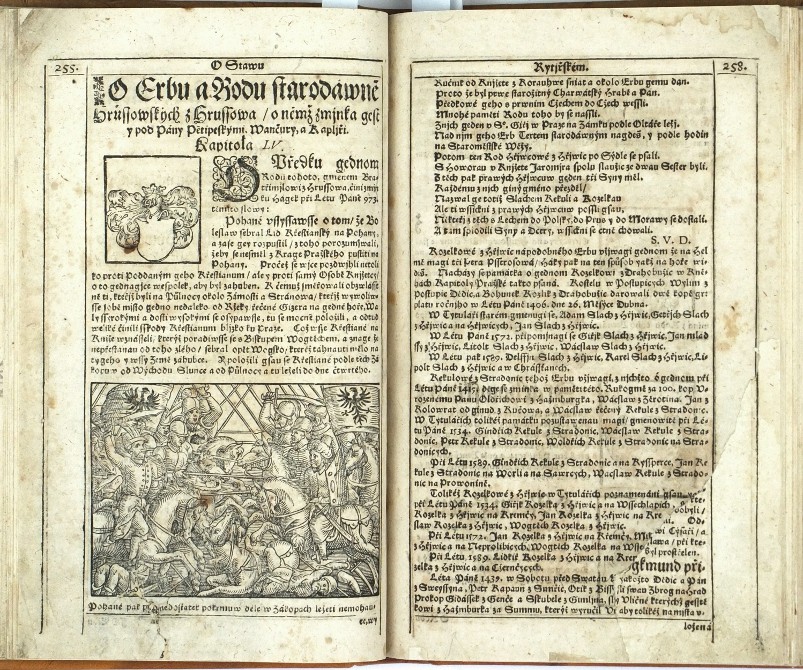 255.
O Stawu
O Erbu a Rodu starodáwně
Hrůssowských z Hrussowa / o němž zmjnka gest
y pod Pány Pětipeskými, Wančury, a Kapljři.
Kapitola LV.
Předku gednom
Rodu tohoto, gménem
z Hrussowa, činj
ku Hágek při Létu Páně 973.
tjmito slowy:
Pohané vslyssawsse o tom / že Bo
leslaw sebral Lid Křestianský na Pohany,
a zase gey rozpustil / z toho porozuměwssi,
žeby se nesměl z Kragě Pražského pustiti na
Pohany.
ko proti Poddaným geho Křestianům / ale y proti samý Osobě Knjžetcý /
o to gednagjce wespolek, aby byl zahuben. K čemuž
né ti, kteřjž byli na Půlnocy okolo Zámosti a Stránowa /
se sobě mjsto gedno nedaleko od Řeky řečené Gizera na gedné hoře,
ly sserokými a dosti wysokými se osypawsse, tu se mocně položili, a odtud
weliké činili sskody Křestianům bljzko ku Praze. Což wsse Křestiané na
Knjže wznássali, kterýž poradiwsse se s Biskupem Wogtěchem, a znage že
nepřestanau od toho zlého / sebral opět Wogsko /
cy geho y wssý Země zahubce. Y položili gsau se Křestiané podle těch Zá
kopů w od Východu Slunce a od Půlnocy a tu leželi do dne čtwrtého.
Pohané pak
nedostatek pokrmůw déle w Zákopách ležeti nemohau
Rytjřském.
258.
Ručnik od Knjžete z Korauhwe sniat a okolo Erbu gemu dán.
Proto že byl prwé starožitný Charwátský Hrabě a Pán.
Předkowé geho s prwnjm Czechem do Czech wessli.
Mnohé paměti Rodu toho by se nassli.
Znich geden v S°. Giřj w Praze na Zámku podle Oltáře ležj.
Nad njm geho Erb Tertem starodáwným nagdeš, y podle hodin
na Staroměstské Wěžy.
Potom ten Rod Hějwcowé z Hějwic po Sýdle se psali.
S Howorau v Knjžete Jaromjra spolu slaužjc ze dwau Sester byli.
Z těch pak prawých Hějwcůw geden tři Syny měl.
Každému z nich giný gméno přezděl /
Nazwal ge totiž Slachem Kekuli a Kozelkau
Ale ti wssickni z prawých Hějwcůw possli gsau.
Někteřj z těch s Lechem do Polsky, do Prus y do Morawy se dostali.
A tam splodili Syny a Dcery, wssickni se ctně chowali.
S. V. D.
Kozelkowé z Hějwic nápodobného Erbu vžjwagj gedinom že na Hel
mě magj tři Péra Pstrosowá / Háky pak na ten spůsob yakž na hoře wi
djš. Nacházý se památka o gednom Kozelkowi z Drahobuzie w Kně-
hách Kapitoly Pražské takto psaná. Kostelu w Postupicých Wylim z
Postupic Dědic, a Bohuněk Kozljk z Drahobuzie darowali dwě kop gr:
platu ročnjho w Létu Páně 1406. dne 26. Měsýce Dubna.
W Tytulářj starém gmenugj se, Adam Slach z Hějwic, Getřjch Slach
z Hějwic a na Hějwicých, Jan Slach z Hějwic.
W Létu Páně 1572. připomjnagj se Giřjk Slach z Hějwic, Jan mlad
ssý z Hějwic, Litolt Slach z Hějwic, Wácslaw Slach z Hějwic.
W Létu pak 1589. Delffjn Slach z Hějwic, Karel Slach z Hějwic, Li
polt Slach z Hějwic a w Chrásstianech.
Kekulowé z Stradonic tehož Erbu vžjwagj, z nichžto o gednom při
Létu Páně 1415. děge se zmjnka w paměti této. Rukogmě za 100. kop V-
rozenému Panu Oldřichowi z Hazmburgka, Wácslaw z Zerotina, Jan z
Kolowrat odginud z Kučowa, a Wácslaw řečený Kekule z Stradonic.
W Tytulářjch tolikéž památku pozustawenau magj / gmenowitě při Lé-
tu Páně 1534. Gindřich Kekule z Stradonic, Wácslaw Kekule z Strado-
nic, Petr Kekule z Stradonic, Woldřich Kekule z Stradonic na Stra-
donicých.
Při Létu 1589. Gindřich Kekule z Stradonic a na Ryssperce, Jan Ke
kule z Stradonic na Worli a na Sawrcých, Wácslaw Kekule z Stradonic
na Prowoznjně.
Tolikéž Kozelkowé z Hějwic w Tytulářjch poznamenánj gsau
při Létu Páně 1534. Giřjk Kozelka z Hějwic a na Wssechlapich
Kozelka z Hějwic na Křemži, Jan Kozelka z Hějwic na
slaw Kozelka z Hějwic, Wogtěch Kozelka z Hějwic.
Při Létu 1572. Jan Kozelka z Hějwic na Křemži
z Hějwic a na Neprobilicých, Wogtěch Kozelka na
Při Létu 1589. Lidkéř Kozelka z Hějwic a na
zelka z Hějwic a na Czerněžcých.
gkmund při-
Léta Páně 1439. w Sobotu před Swatau
yakožto Dědic a Pán
z Sweyssýna, Petr Kapaun z Smrčic, Otjk z
Prokop Gidássek z Genče
kowi z Hazmburka za Summu, kterýž wyručil
ložená